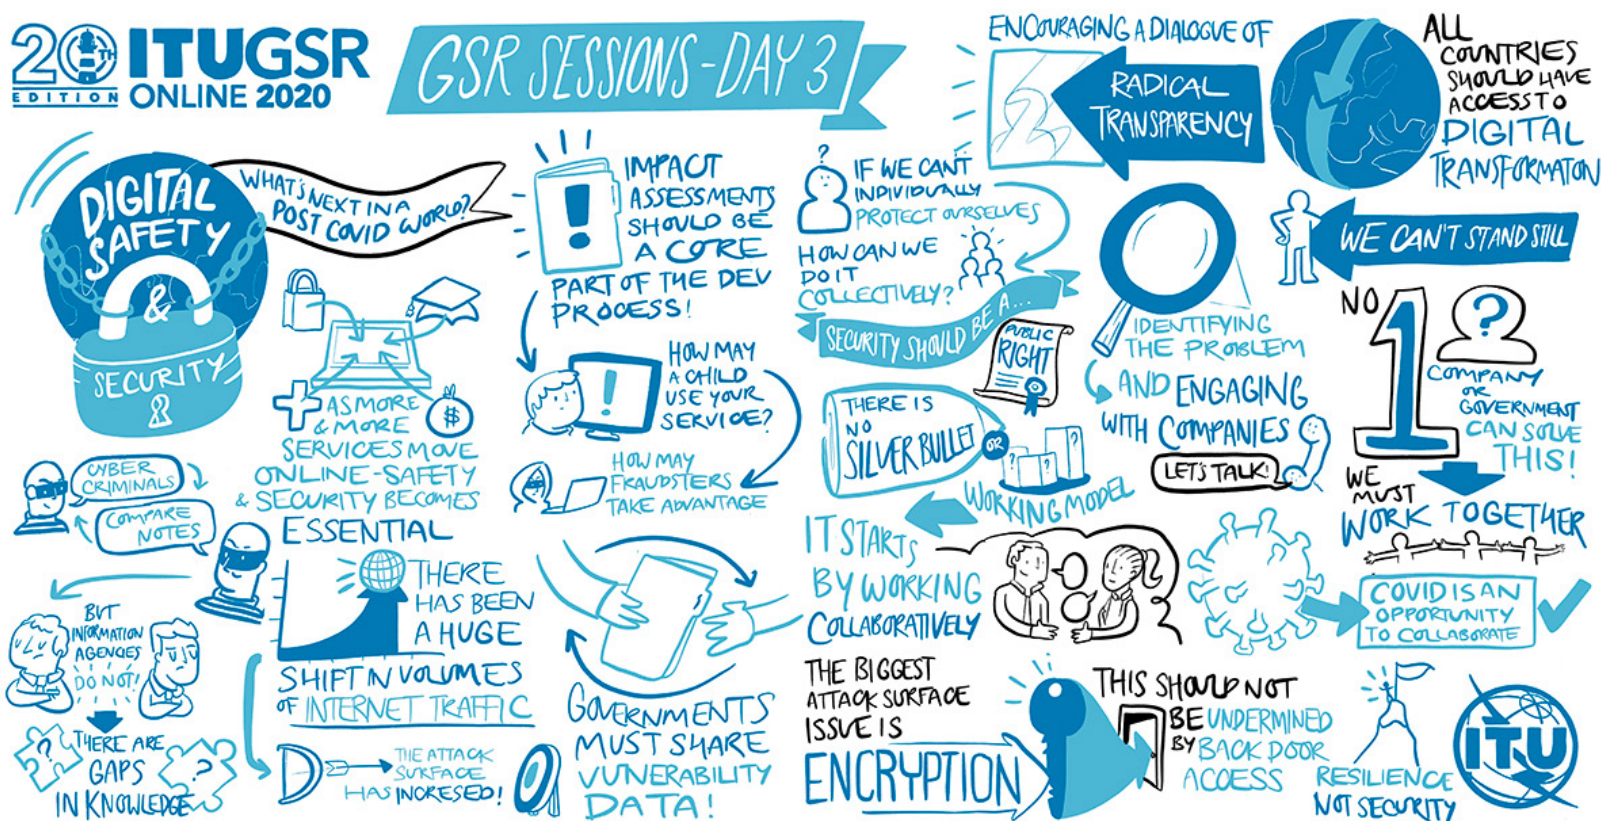 20TH
EDITION
ITUGSR
ONLINE 2020
GSR SESSIONS - DAY 3
DIGITAL
SAFETY
&
SECURITY
WHAT'S NEXT IN A
POST COVID WORLD?
AS MORE
& MORE
SERVICES MOVE
ONLINE - SAFETY
& SECURITY BECOMES
ESSENTIAL
$
CYBER
CRIMINALS
COMPARE
NOTES
BUT
INFORMATION
AGENCIES
DO NOT!
THERE ARE
GAPS
IN KNOWLEDGE
?
?
THERE
HAS BEEN
A HUGE
SHIFT IN VOLUMES
OF INTERNET TRAFFIC
THE ATTACK
SURFACE
HAS INCRESED!
!
IMPACT
ASSESSMENTS
SHOULD BE
A CORE
PART OF THE DEV
PROCESS!
!
HOW MAY
A CHILD
USE YOUR
SERVICE?
HOW MAY
FRAUDSTERS
TAKE ADVANTAGE
GOVERNMENTS
MUST SHARE
VUNERABILITY
DATA!
?
IF WE CAN'T
INDIVIDUALLY
PROTECT OURSELVES
HOW CAN WE
DO IT
COLLECTIVELY?
SECURITY SHOULD BE A...
PUBLIC
RIGHT
THERE IS
NO
SILVER BULLET
OR
? ? ?
WORKING MODEL
IT STARTS
BY WORKING
COLLABORATIVELY
THE BIGGEST
ATTACK SURFACE
ISSUE IS
ENCRYPTION
THIS SHOULD NOT
BE UNDERMINED
BY BACK DOOR
ACCESS
ENCOURAGING A DIALOGUE OF
RADICAL
TRANSPARENCY
ALL
COUNTRIES
SHOULD HAVE
ACCESS TO
DIGITAL
TRANSFORMATON
WE CAN'T STAND STILL
IDENTIFYING
THE PROBLEM
AND ENGAGING
WITH COMPANIES
LET'S TALK!
NO 1
?
COMPANY
OR
GOVERNMENT
CAN SOLVE
THIS!
WE
MUST
WORK TOGETHER
COVID IS AN
OPPORTUNITY
TO COLLABORATE
RESILIENCE
NOT SECURITY
ITU